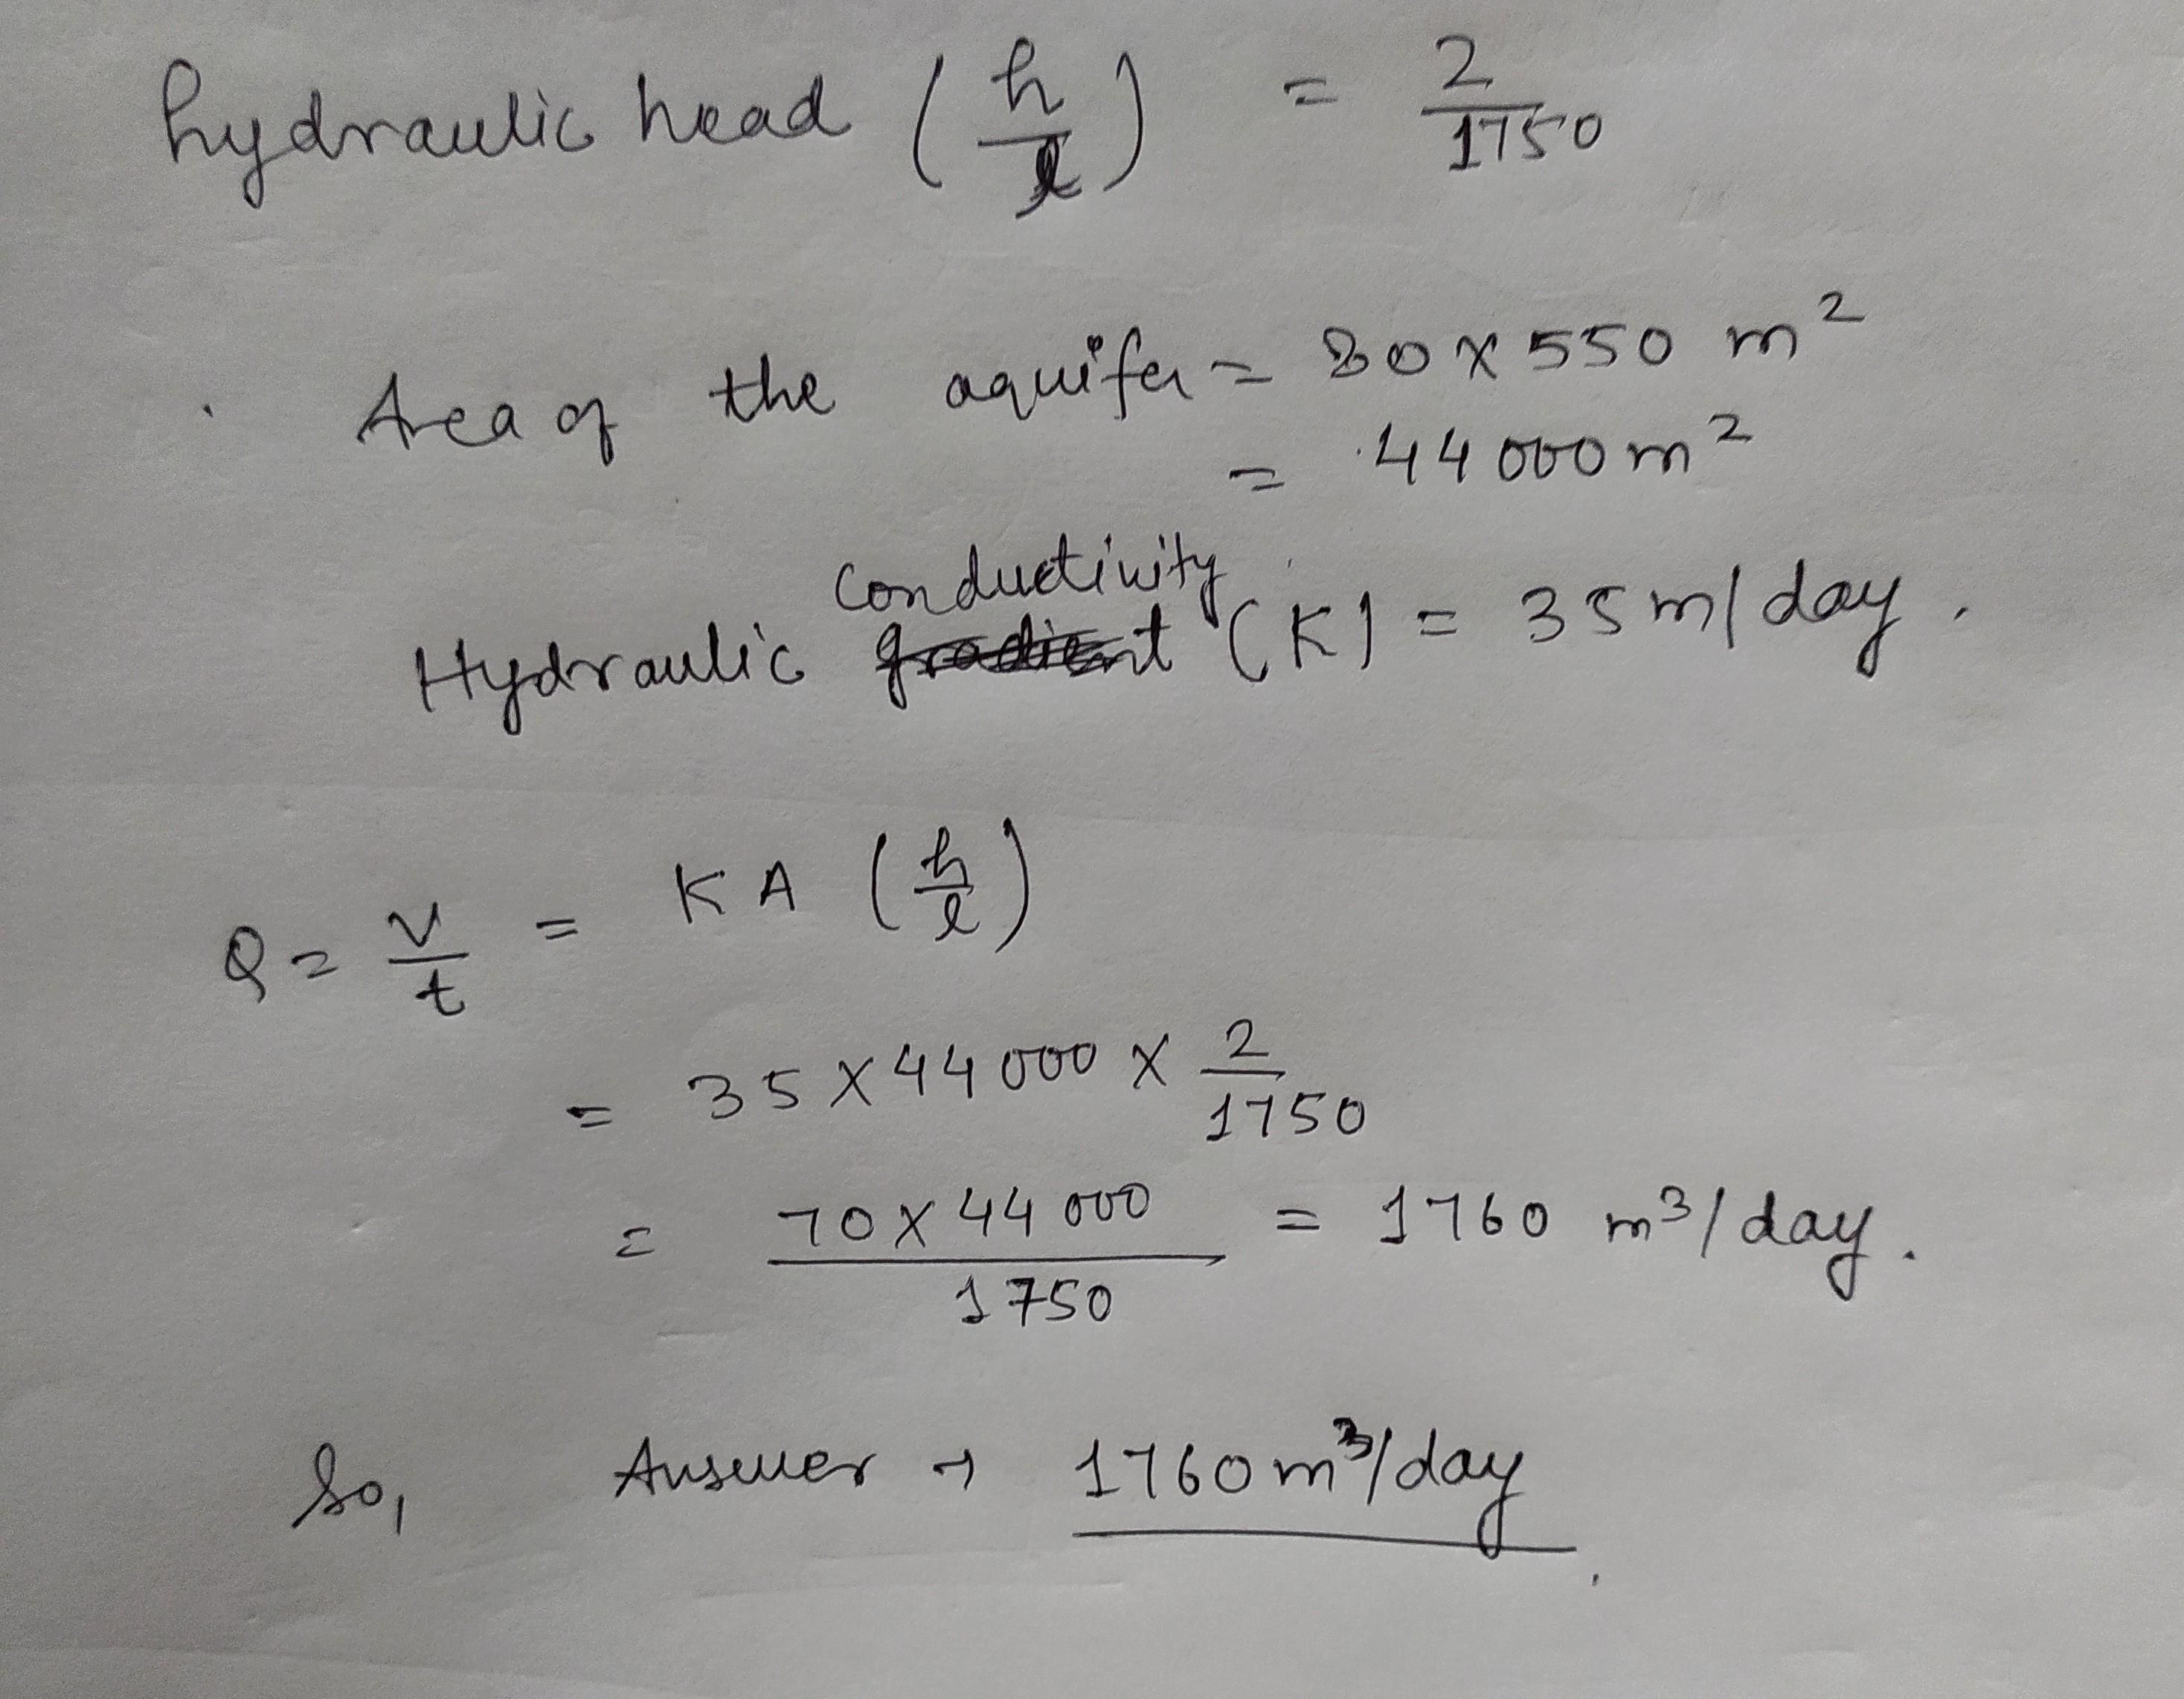 hydraulic head (h/l) = 2/1750
Area of the aquifer = 80 x 550 m²
= 44000 m²
conductivity
Hydraulic gradient (K) = 35 m/day.
Q = V/t = KA (h/l)
= 35 x 44000 x 2/1750
= 70 x 44000/1750 = 1760 m³/day.
So, Answer → 1760 m³/day.